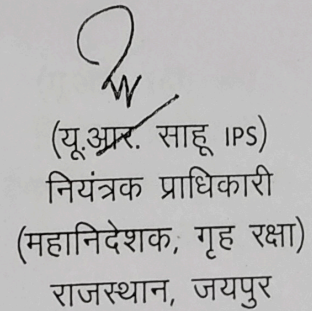 (यू.आर. साहू IPS)
नियंत्रक प्राधिकारी
(महानिदेशक, गृह रक्षा)
राजस्थान, जयपुर